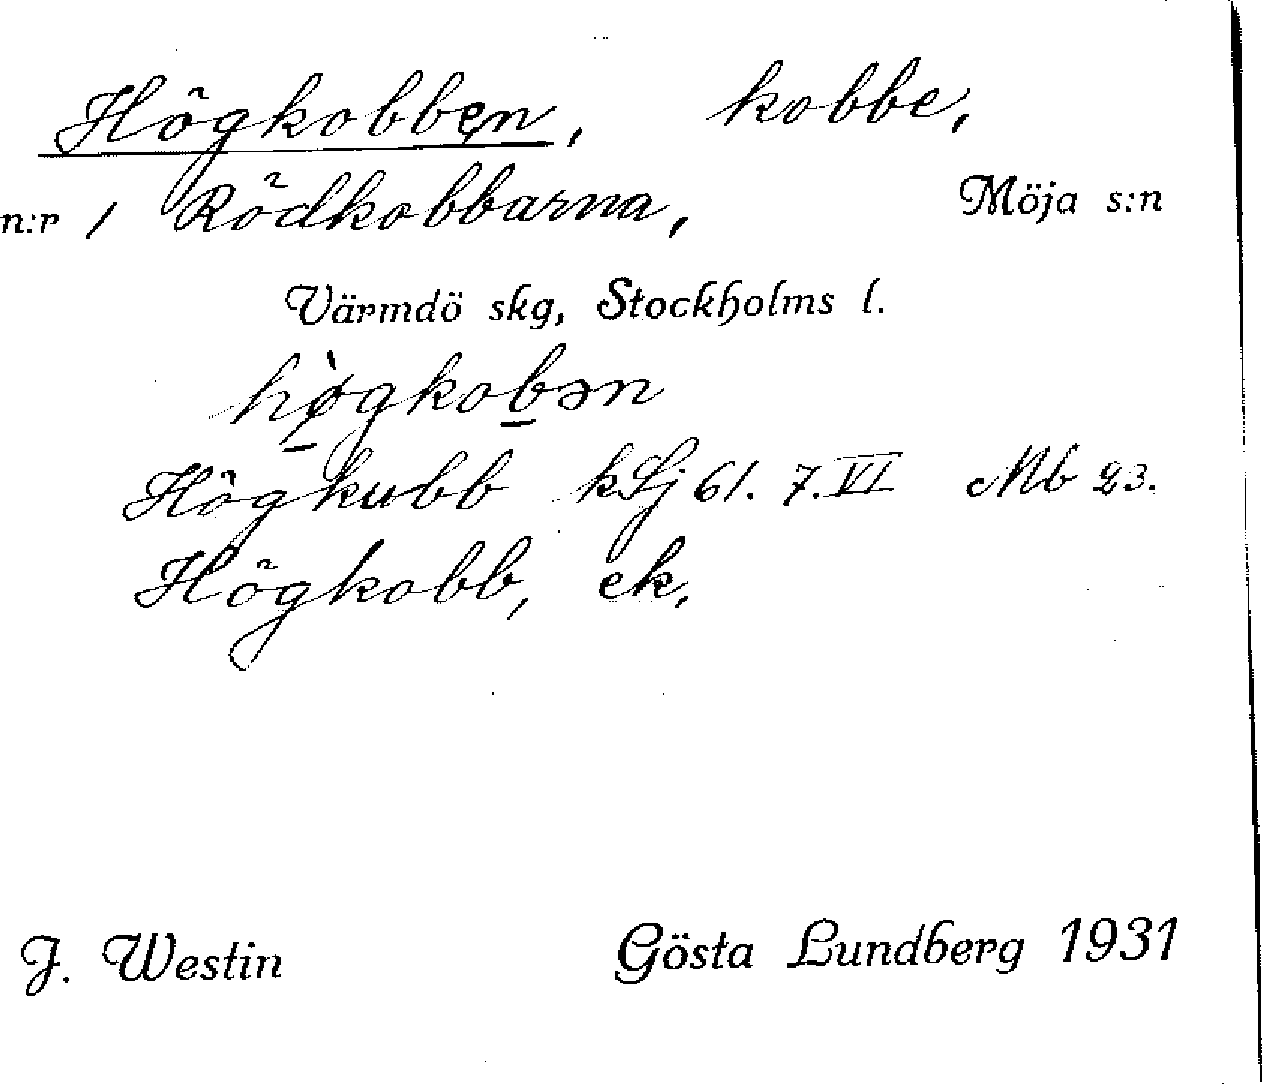 Högkobben, kobbe,
n:r 1 Rödkobbarna, Möja s:n
Värmdö skg, Stockholms l.
hø̀gkobən
Högkubb kLj 61. 7.VI Mb 23.
Högkobb, ek,
J. Westin Gösta Lundberg 1931